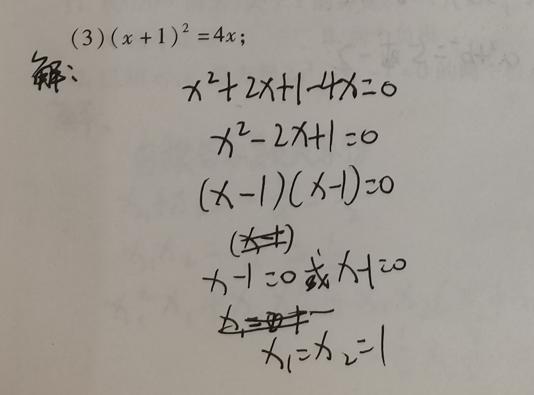 (3)(x+1)²=4x;
解:
x²+2x+1-4x=0
x²-2x+1=0
(x-1)(x-1)=0
x-1=0或x-1=0
x₁=x₂=1